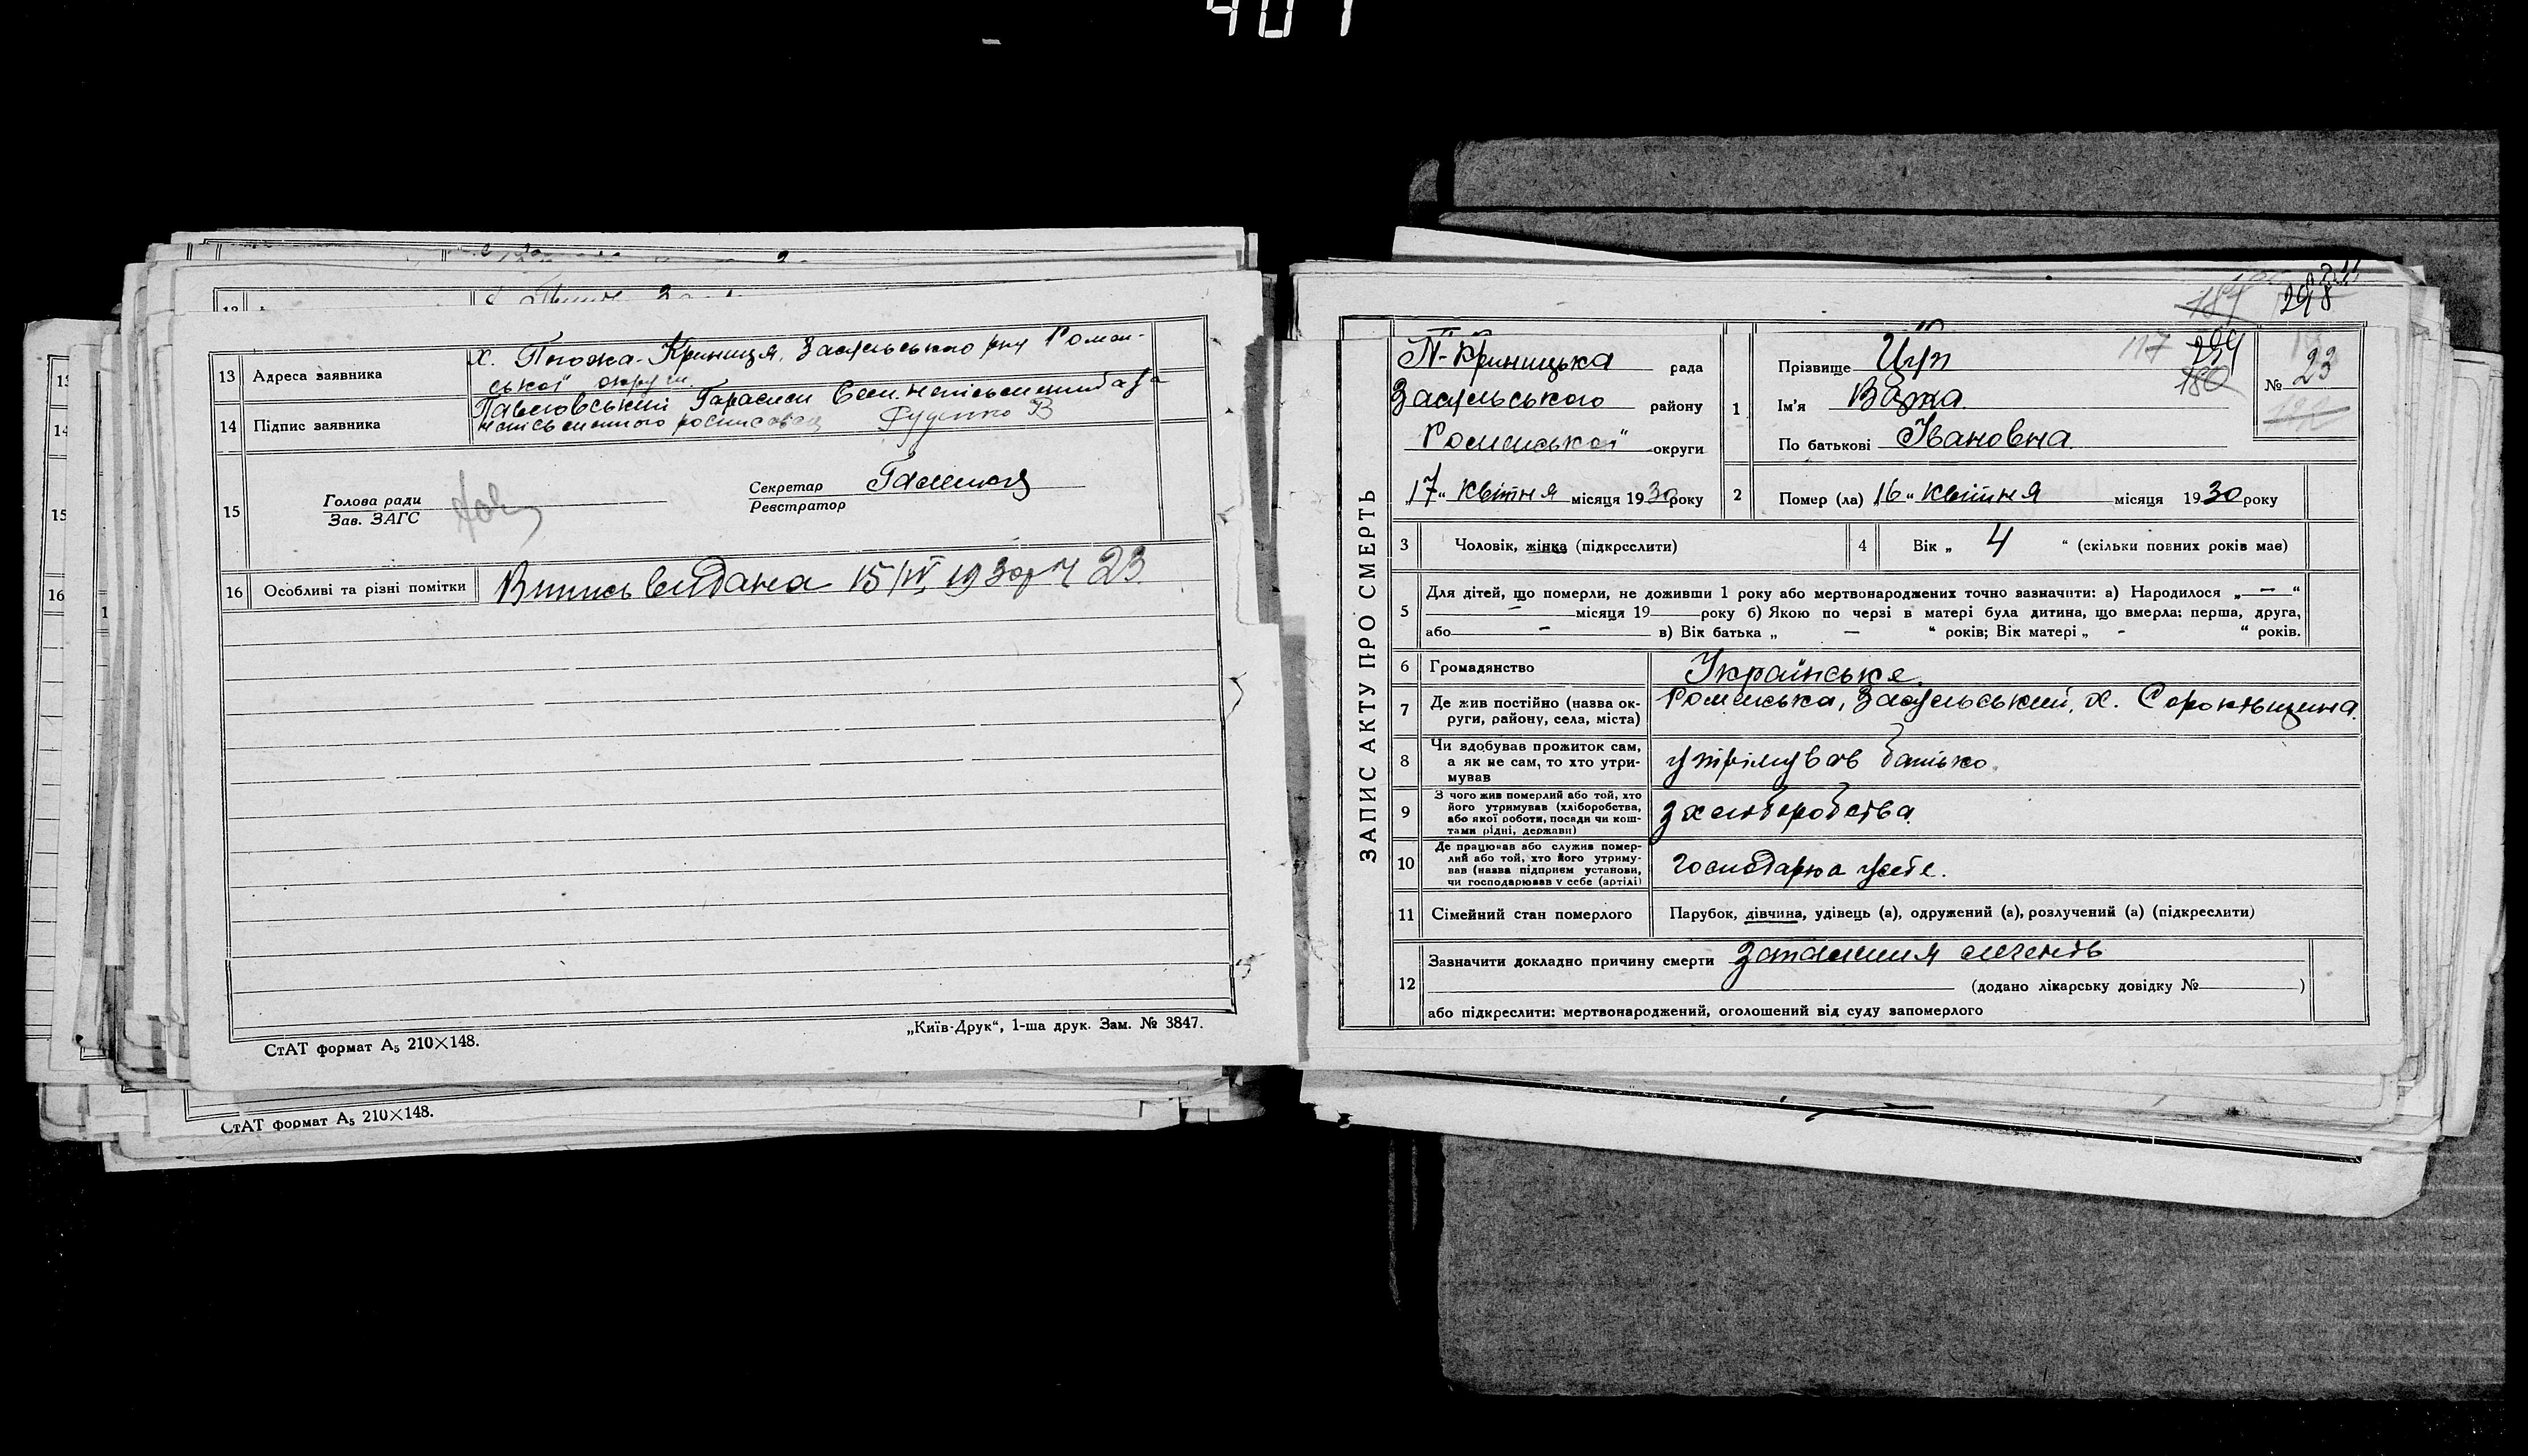 407
13 Адреса заявника
Х. Погожа-Криниця, Засульського р-ну Ромен-
ської округи.
14 Підпис заявника
Павловський Герасим
неписьменного росписався Руденко В
15
Голова ради
Зав. ЗАГС
Секретар
Реєстратор
16 Особливі та різні помітки
Випись видана 15/IV 1930 р Ч 23
СтАТ формат А₅ 210×148.
„Київ-Друк“, 1-ша друк. Зам. № 3847.
СтАТ формат А₅ 210×148.
298
ЗАПИС АКТУ ПРО СМЕРТЬ
П-Криницька рада
Засульського району
Роменської округи
„17“ Квітня місяця 1930 року
1 Прізвище Цуп
Ім'я Варка
По батькові Івановна
117
180
№ 23
2 Помер (ла) „16“ Квітня місяця 1930 року
3 Чоловік, жінка (підкреслити)
4 Вік „ 4 “ (скільки повних років має)
5 Для дітей, що померли, не доживши 1 року або мертвонароджених точно зазначити: а) Народилося „ — “
— місяця 19 року б) Якою по черзі в матері була дитина, що вмерла: перша, друга,
або - в) Вік батька „ — “ років; Вік матері „ - “ років.
6 Громадянство Українське
7 Де жив постійно (назва ок-
руги, району, села, міста)
Роменська, Засульський, х. Сороківщина.
8 Чи здобував прожиток сам,
а як не сам, то хто утри-
мував
утрімував батько.
9 З чого жив померлий або той, хто
його утримував (хліборобства,
або якої роботи, посади чи кош-
тами рідні, держави)
з хліборобства.
10 Де працював або служив помер-
лий або той, хто його утриму-
вав (назва підприєм установи,
чи господарював у себе (артілі)
господарюа усебе.
11 Сімейний стан померлого
Парубок, дівчина, удівець (а), одружений (а), розлучений (а) (підкреслити)
12 Зазначити докладно причину смерти запалиния легенів
(додано лікарську довідку № )
або підкреслити: мертвонароджений, оголошений від суду запомерлого